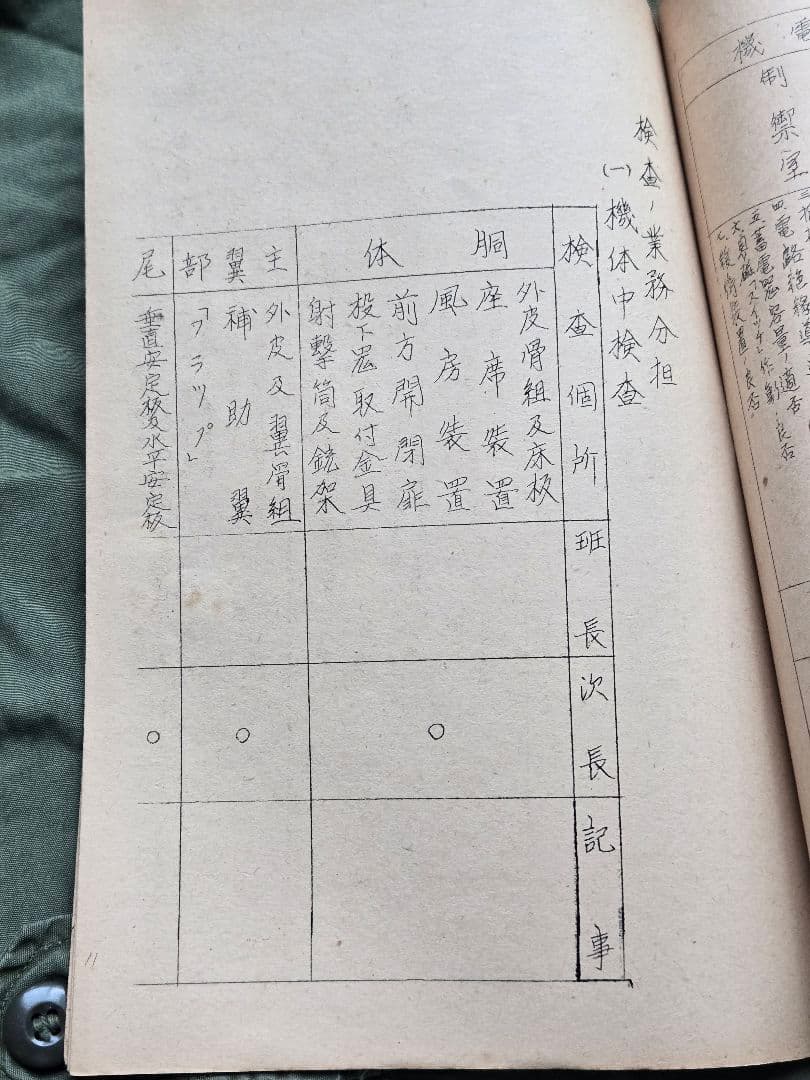 電
機
制禦室
四、電路絶縁導
五、蓄電器容量ノ適否
検査ノ業務分担
(一)機体中検査
検査個所
班長
次長
記事
胴体
外皮骨組及床板
座席装置
風房装置
前方開閉扉
投下器取付金具
射撃筒及銃架
○
主翼部
外皮及翼骨組
補助翼
「フラップ」
○
尾
垂直安定板及水平安定板
○
11